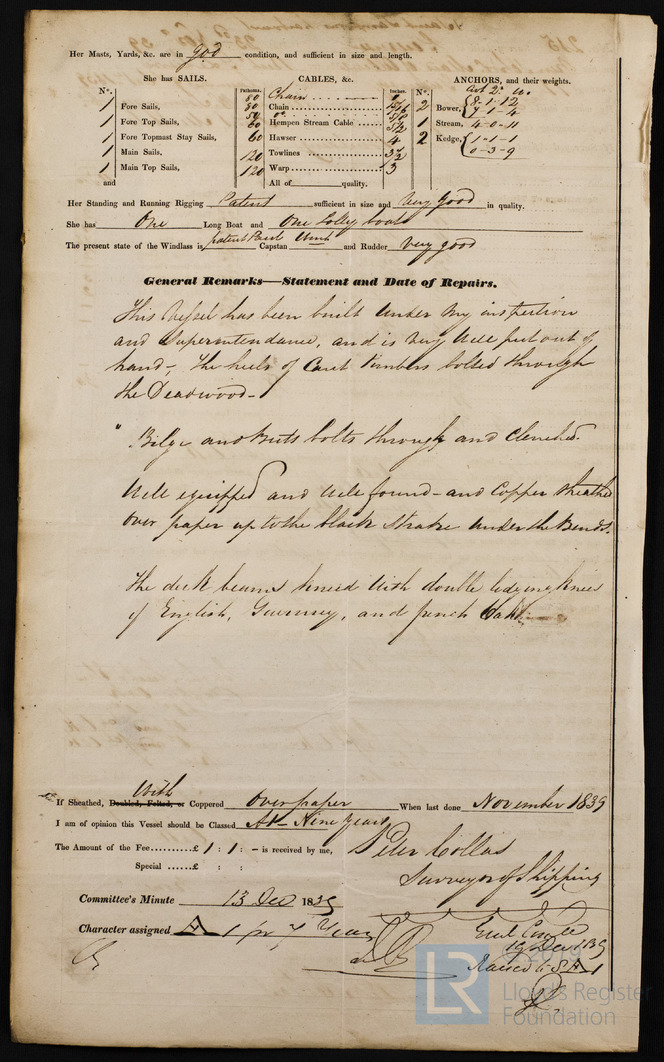 Her Masts, Yards, &c. are in good condition, and sufficient in size and length.
She has SAILS.
CABLES, &c.
ANCHORS, and their weights.
N°.
Fathoms.
Inches.
N°.
80 Chain
1 Fore Sails,
Chain
2 Bower, 8-1-12
1 Fore Top Sails,
60 Hempen Stream Cable 5½
1 Stream, 4-0-11
1 Fore Topmast Stay Sails,
60 Hawser 4
2 Kedge, 1-1-1
1 Main Sails,
120 Towlines 3½
0-3-9
1 Main Top Sails,
120 Warp 3
and
All of quality.
Her Standing and Running Rigging Patent sufficient in size and Very good in quality.
She has One Long Boat and One Jolly boat
The present state of the Windlass is patent Capstan and Rudder very good
General Remarks—Statement and Date of Repairs.
This Vessel has been built under my inspection
and Superintendance, and is very well put out of
hand - The heels of Cant Timbers bolted through
the Deadwood -
" Bilge and Butts bolts through and Clenched.
Well equipped and well found - and Copper sheathed
over paper up to the black Strake under the Bends.
The deck beams kneed with double lodging knees
of English, Guernsey, and french Oak
With
If Sheathed, Doubled, Felted, or Coppered Over paper When last done November 1839
I am of opinion this Vessel should be Classed A1 - Nine Years
The Amount of the Fee.........£ 1 : 1 : - is received by me,
Peter Collas
Special ......£ : :
Surveyor of Shipping
Committee's Minute 13 Dec 1839
Character assigned A 1 for 7 Years
19 Dec 1839
Raised to 8 A 1
LR
Lloyd's Register
Foundation